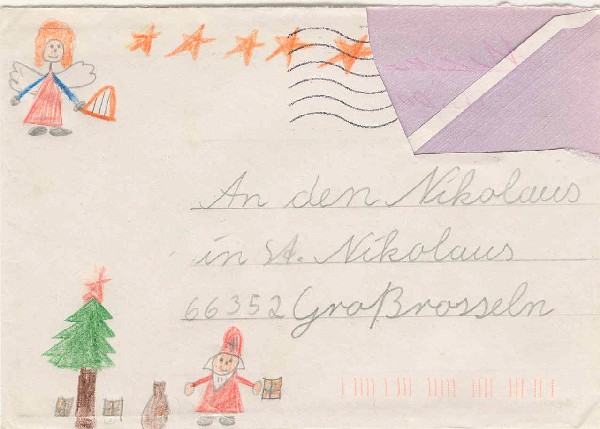 An den Nikolaus
in St. Nikolaus
66352 Großrosseln